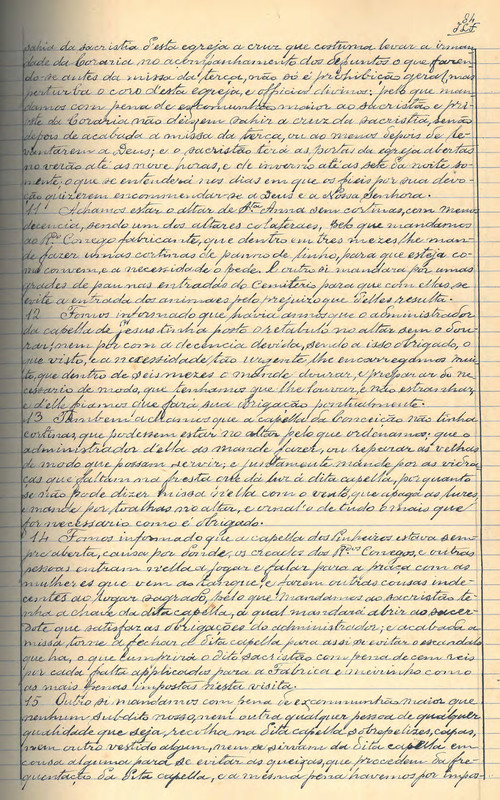 84
sahia da sacristia d'esta egreja a cruz que costuma levar a irman-
dade da Coraria no acompanhamento dos defuntos o que fazem-
do-se antes da missa da terça, não só é prohibição geral, mas
perturba o coro d'esta egreja, e officios divinos; pelo que man-
damos com pena de excommunhão maior ao sacristão e pri-
oste da Coraria não deixem sahir a cruz da sacristia, senão
depois de acabada a missa da terça, ou ao menos depois de le-
vantarem a Deus; e o sacristão terá as portas da egreja abertas
no verão até as nove horas, e de inverno até as sete da noite so-
mente, o que se entenderá nos dias em que os fieis por sua devo-
ção quizerem encommendar-se a Deus e a Nossa Senhora.
11 Achamos estar o altar de Sta Anna sem cortinas, com menos
decencia, sendo um dos altares colateraes, pelo que mandamos
ao Rdo Conego fabricante, que dentro em tres mezes lhe man-
de fazer umas cortinas de panno de linho, para que esteja co-
mo convem, e a necessidade o pede. E outro si mandará por umas
grades de pau nas entradas do Cemiterio para que com ellas se
evite a entrada dos animaes pelo prejuizo que d'elles resulta.
12 Fomos informado que havia annos que o administrador
da capella de Jesus tinha posto o retabulo no altar sem o dou-
rar, nem por com a decencia devida, sendo a isso obrigado, o
que visto, e a necessidade tão urgente, lhe encarregamos mui-
to, que dentro de seis mezes o mande dourar, e preparar do ne-
cessario de modo, que tenhamos que lhe louvar, e não estranhar,
e d'elle fiamos que fará sua obrigação pontualmente.
13 Tambem achamos que a capella da Conceição não tinha
cortinas, que podessem estar no altar pelo que ordenamos que o
administrador d'ella as mande fazer, ou reparar as velhas
de modo que possam servir; e juntamente mande por as vidra-
ças que faltam na fresta que dá luz á dita capella, porquanto
se não pode dizer missa n'ella com o vento, que apaga as luzes,
e mande por toalhas no altar, e ornal-o de tudo o mais que
for necessario como é obrigado.
14 Fomos informado que a capella dos Pinheiros estava sem-
pre aberta, causa por donde, os creados dos Rdos Conegos, e outras
pessoas entram n'ella a jogar e falar para a praça com as
mulheres que vem ao tanque, e fazem outras cousas inde-
centes ao logar sagrado, pelo que mandamos ao sacristão te-
nha a chave da dita capella, a qual mandará abrir ao sacer-
dote que satisfaz as obrigações do administrador; e acabada a
missa torne a fechar a dita capella para assi se evitar o escandalo
que ha, o que cumprirá o dito sacristão com pena de cem reis
por cada falta applicados para a Fabrica e meirinho como
as mais penas impostas n'esta visita.
15 Outro si mandamos com pena de excommunhão maior que
nenhum subdito nosso, nem outra qualquer pessoa de qualquer
qualidade que seja, recolha na dita capella sobrepelizes, capas,
nem outro vestido algum, nem se sirvam da dita capella em
cousa alguma para se evitar as queixas, que procedem da fre-
quentação da dita capella, e a mesma pena havemos por impos-